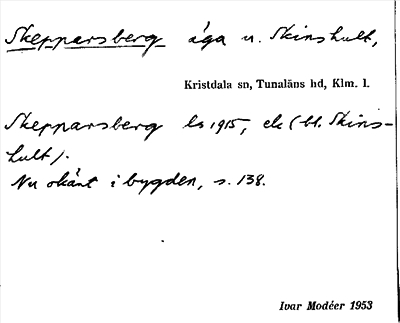 Skepparsberg äga u. Skinshult,
Kristdala sn, Tunaläns hd, Klm. l.
Skepparsberg ls 1915, ek (bl. Skins-
hult).
Nu okänt i bygden, s. 138.
Ivar Modéer 1953